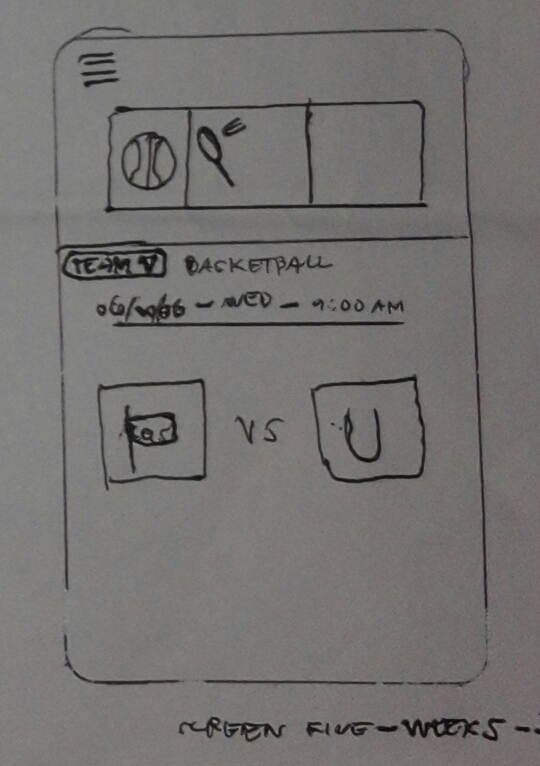 TEAM V BASKETBALL
- WED - 9:00 AM
VS
U
SCREEN FIVE - WEEKS -